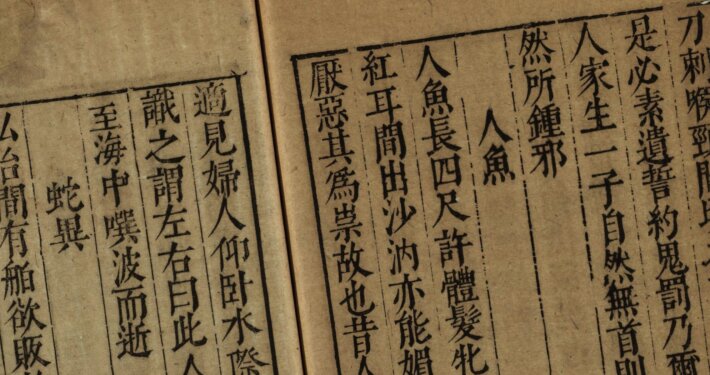 刀刺喉頸
是必素遺誓約鬼罰乃爾
人家生一子自然無首則
然所鍾邪
人魚
人魚長四尺許體髮牝
紅耳間出沙汭亦能媚
厭惡其為祟故也昔人
適見婦人仰卧水際
識之謂左右曰此人
至海中噀波而逝
蛇異
弘治間有舶欲敗